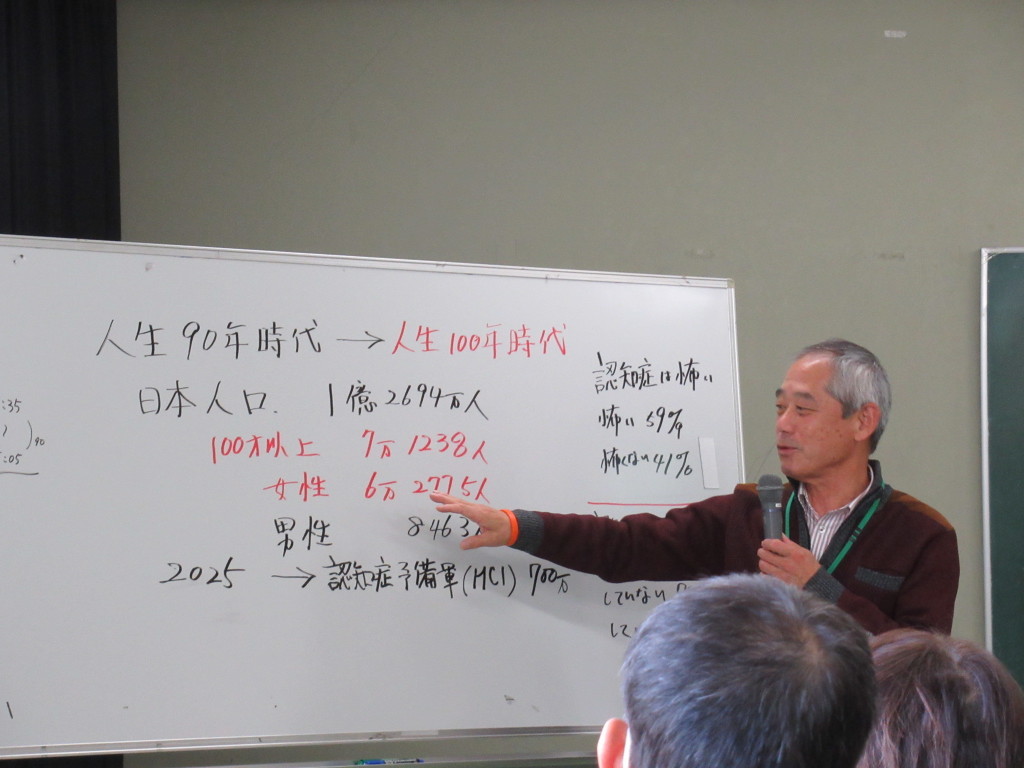 人生90年時代 → 人生100年時代
日本人口. 1億2694万人
100才以上 7万1238人
女性 6万2775人
男性 8463人
2025 → 認知症予備軍(MCI) 700万
認知症は怖い
怖い 59%
怖くない 41%
していない
して
:35
?
)90
:05